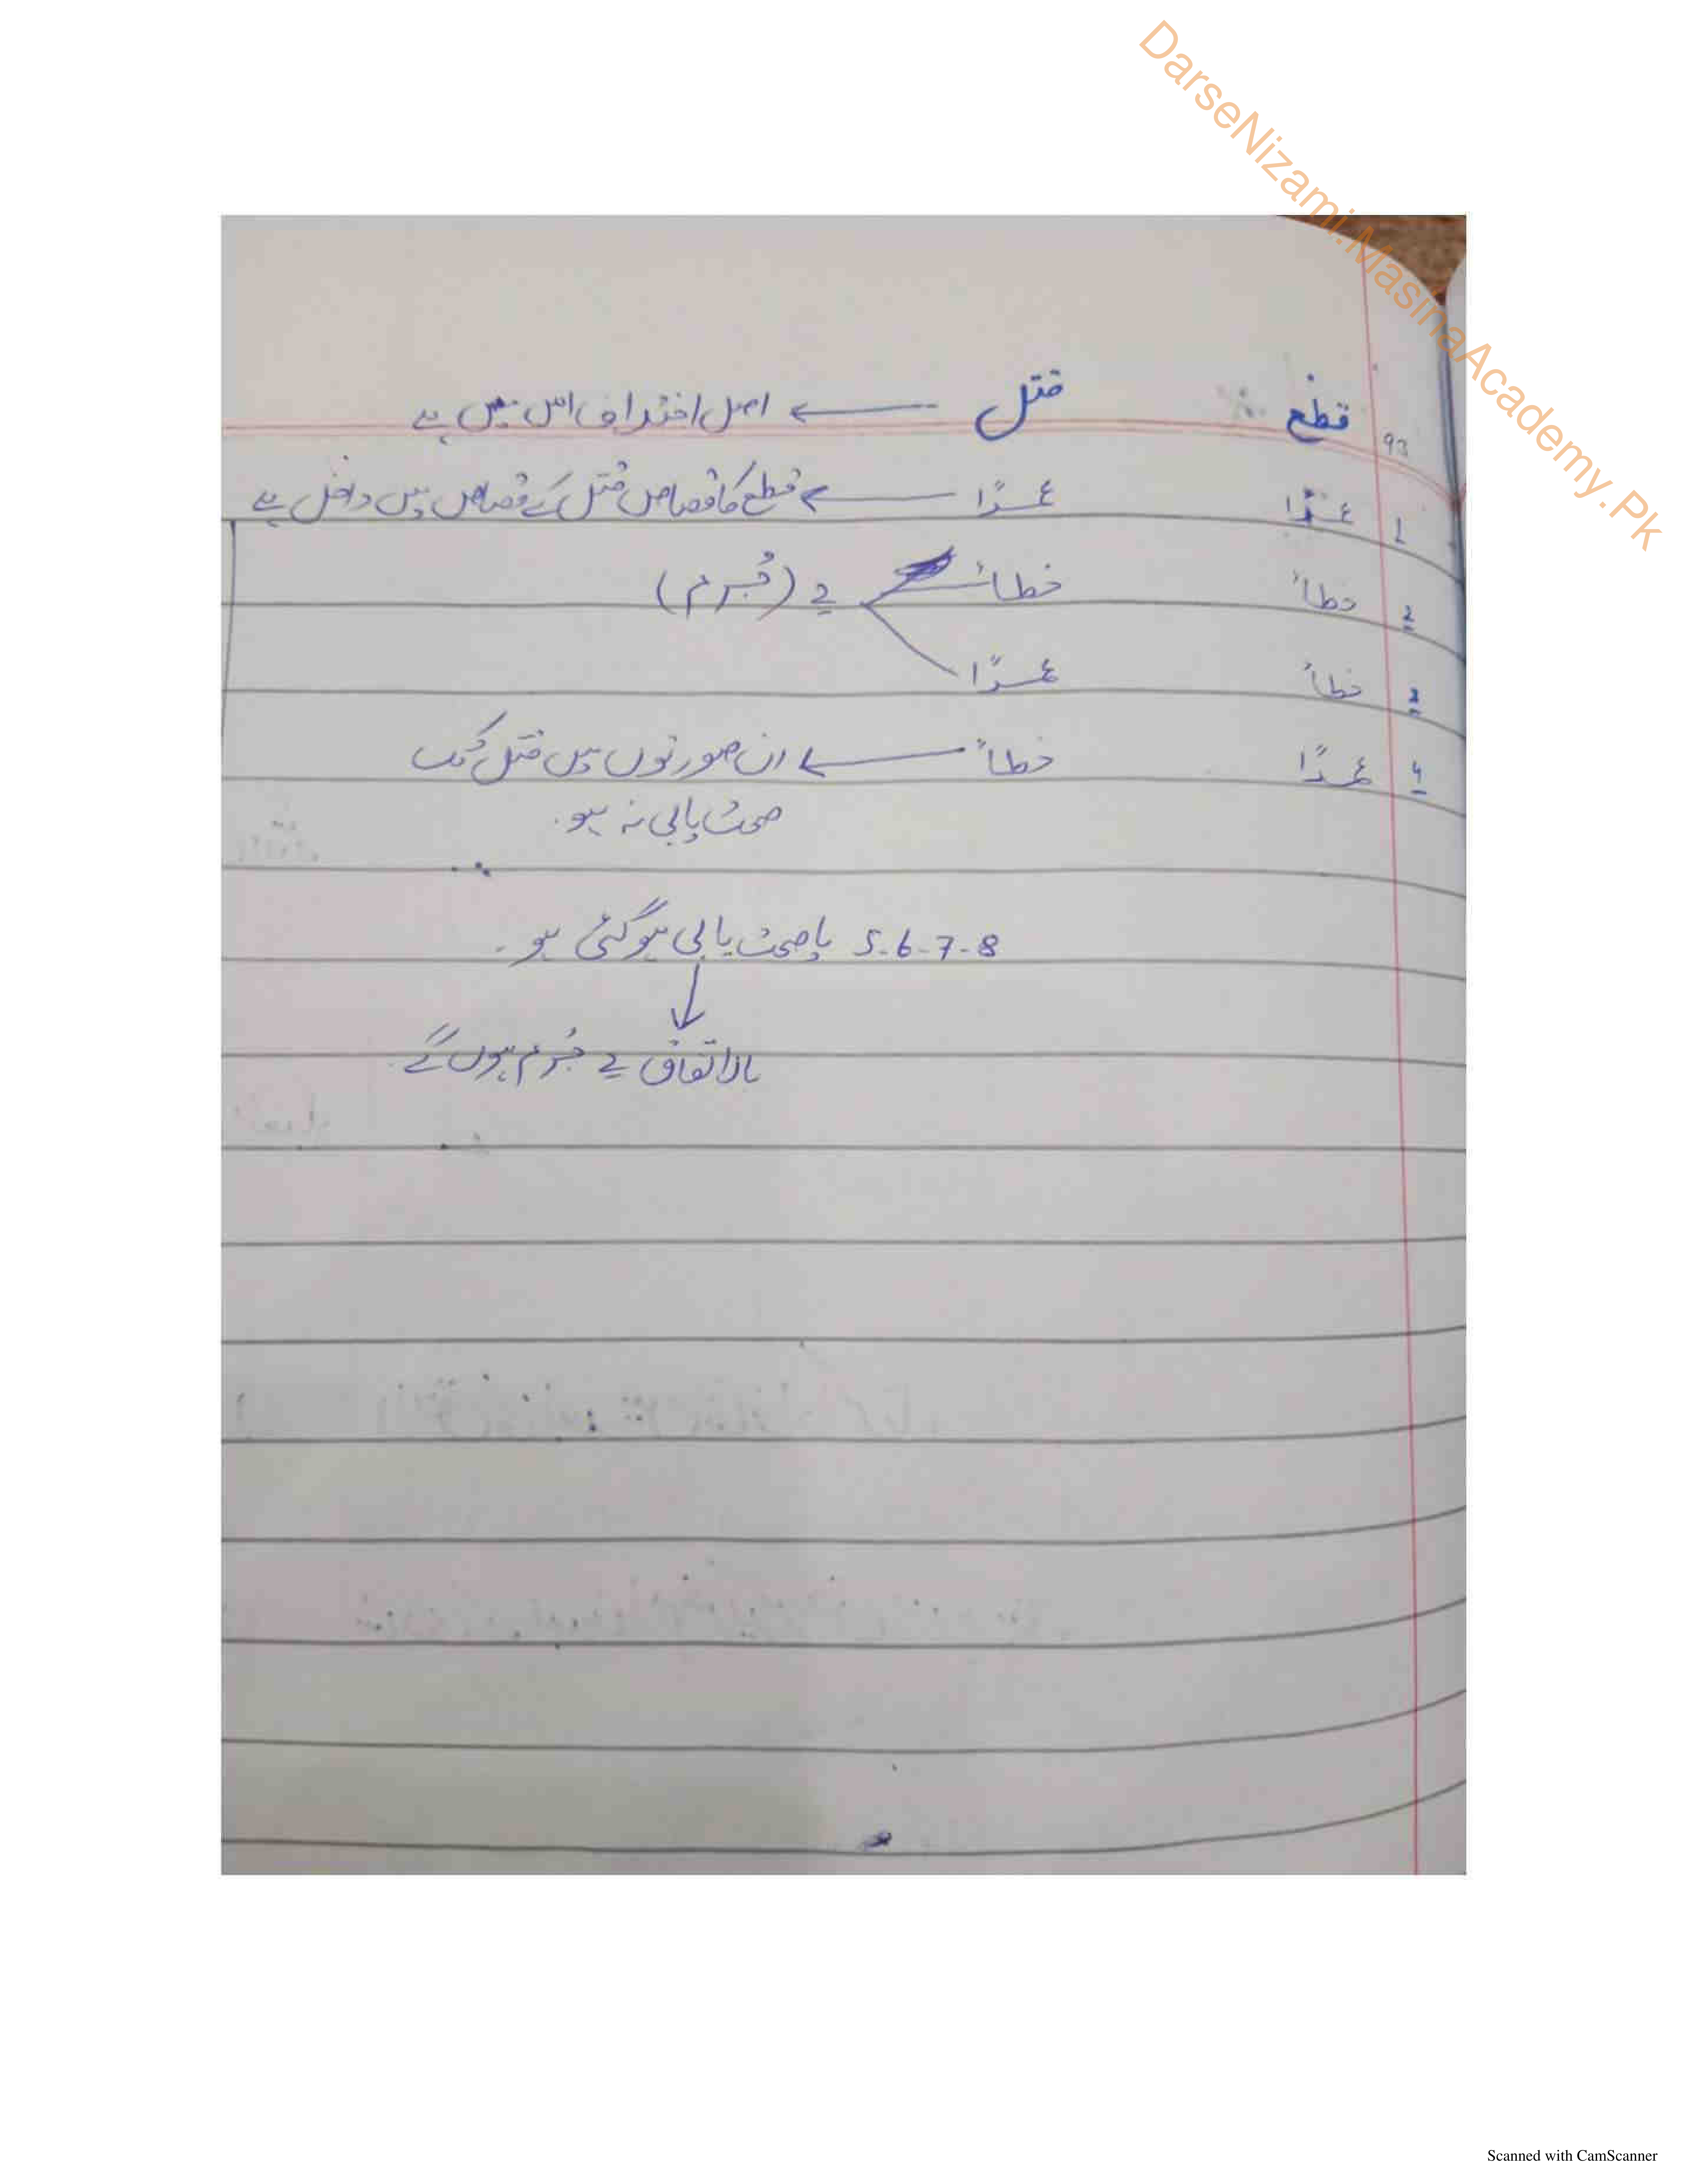 DarseNizami.MasinaAcademy.Pk
قطع قتل ← اصل اختلاف اس میں ہے
93
1 عمدًا عمدًا ← قطع کا قصاص قتل کے قصاص میں داخل ہے
2 خطاً خطاً 2 (جُرم)
3 خطاً عمدًا
4 عمدًا خطاً ← ان صورتوں میں قتل
صحت یابی نہ ہو۔
5-6-7-8 یا صحت یابی ہو گئی ہو۔
↓
بالاتفاق 2 جُرم ہوں گے۔
Scanned with CamScanner